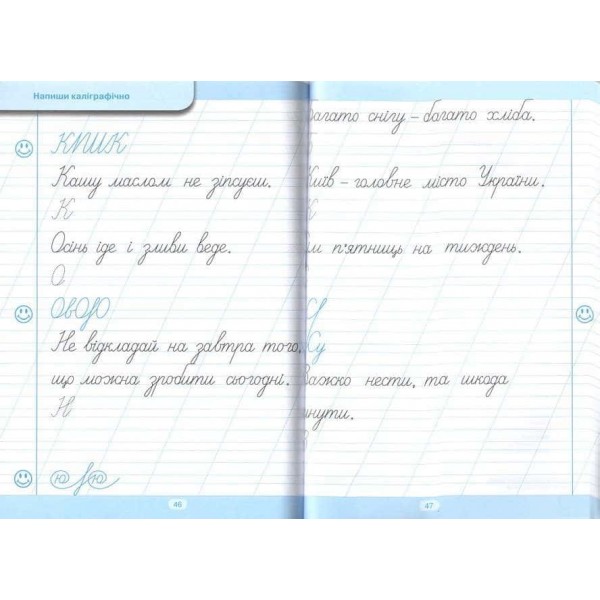 Напиши каліграфічно
Кашу маслом не зіпсуєш.
К
Осінь іде і зливи веде.
О
Не відкладай на завтра того,
що можна зробити сьогодні.
Н
46
снігу – багато хліба.
– головне місто України.
К
п'ятниць на тиждень.
нести, та шкода
47